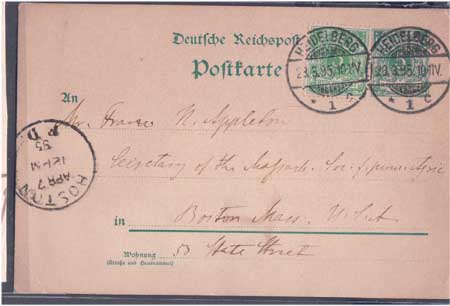 Deutsche Reichspost
Postkarte
HEIDELBERG
*1 c
HEIDELBERG
*1 c
An
Mr. Francis N. Appleton
Secretary of the
BOSTON
APR 7
12 M
95
P D
in Boston Mass. U.S.A
Wohnung
(Straße und Hausnummer)
53 State Street